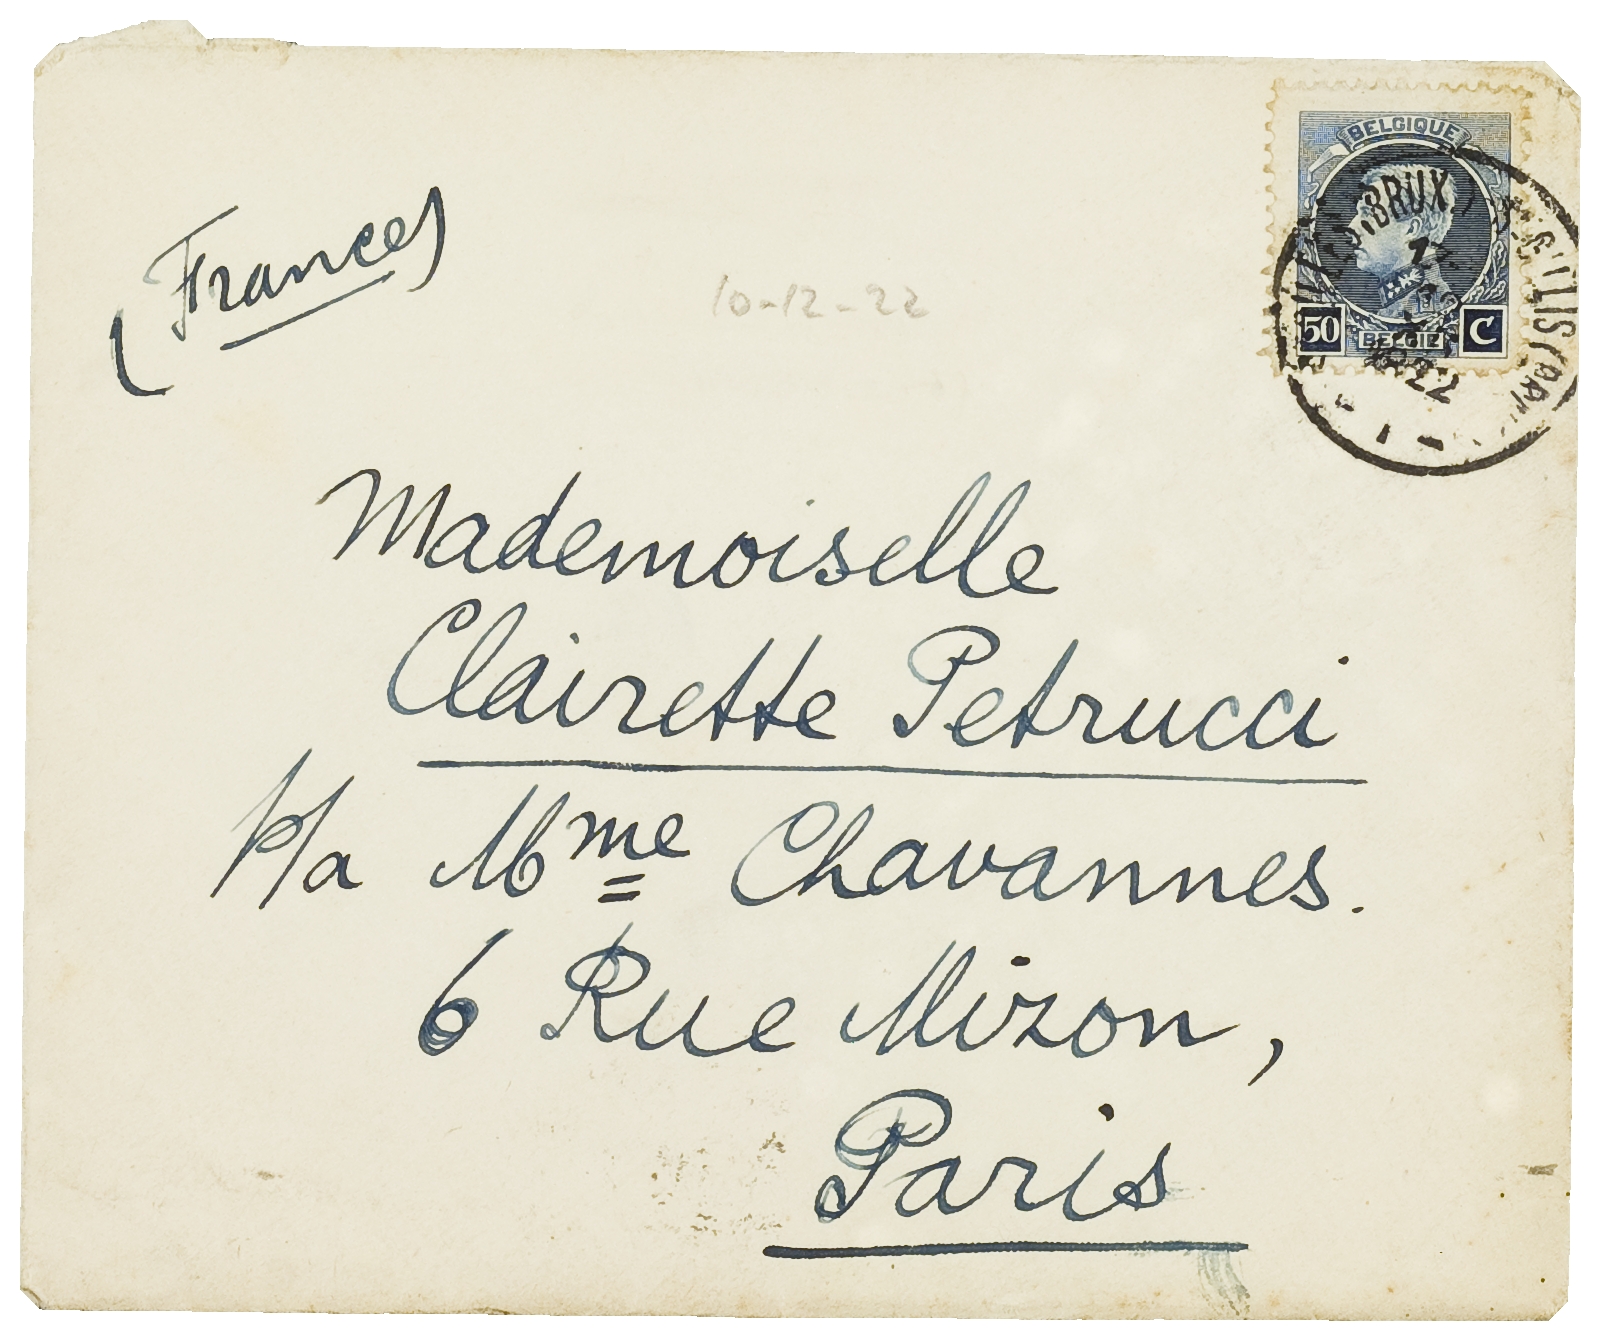 (France)
10-12-22
BELGIQUE
50 C
BELGIË
1922
Mademoiselle
Clairette Petrucci
p/a Mme Chavannes.
6 Rue Mizon,
Paris